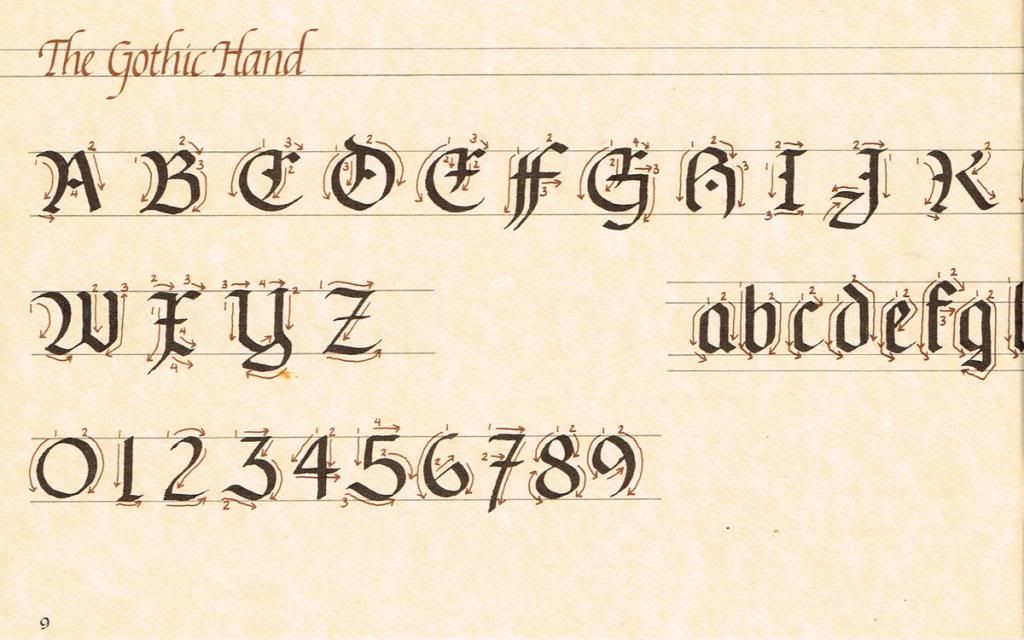 The Gothic Hand
A B C D E F G H I J K
W X Y Z
a b c d e f g
0 1 2 3 4 5 6 7 8 9
9